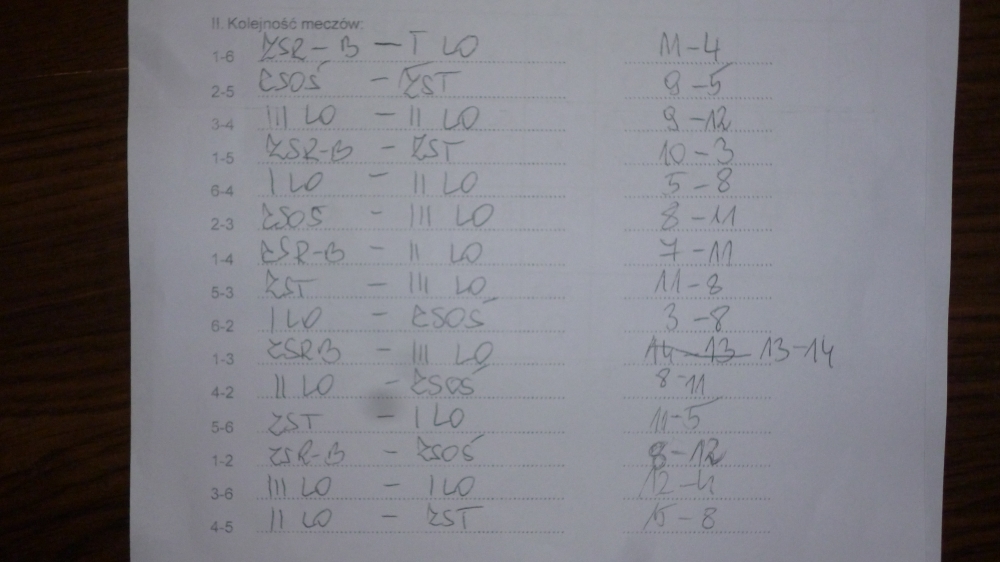 II. Kolejność meczów:
1-6 ZSR-B - I LO 11-4
2-5 ZSOŚ - ZST 9-5
3-4 III LO - II LO 9-12
1-5 ZSR-B - ZST 10-3
6-4 I LO - II LO 5-8
2-3 ZSOŚ - III LO 8-11
1-4 ZSR-B - II LO 7-11
5-3 ZST - III LO 11-8
6-2 I LO - ZSOŚ 3-8
1-3 ZSRB - III LO 14-13 13-14
4-2 II LO - ZSOŚ 8-11
5-6 ZST - I LO 11-5
1-2 ZSR-B - ZSOŚ 8-12
3-6 III LO - I LO 12-4
4-5 II LO - ZST 15-8